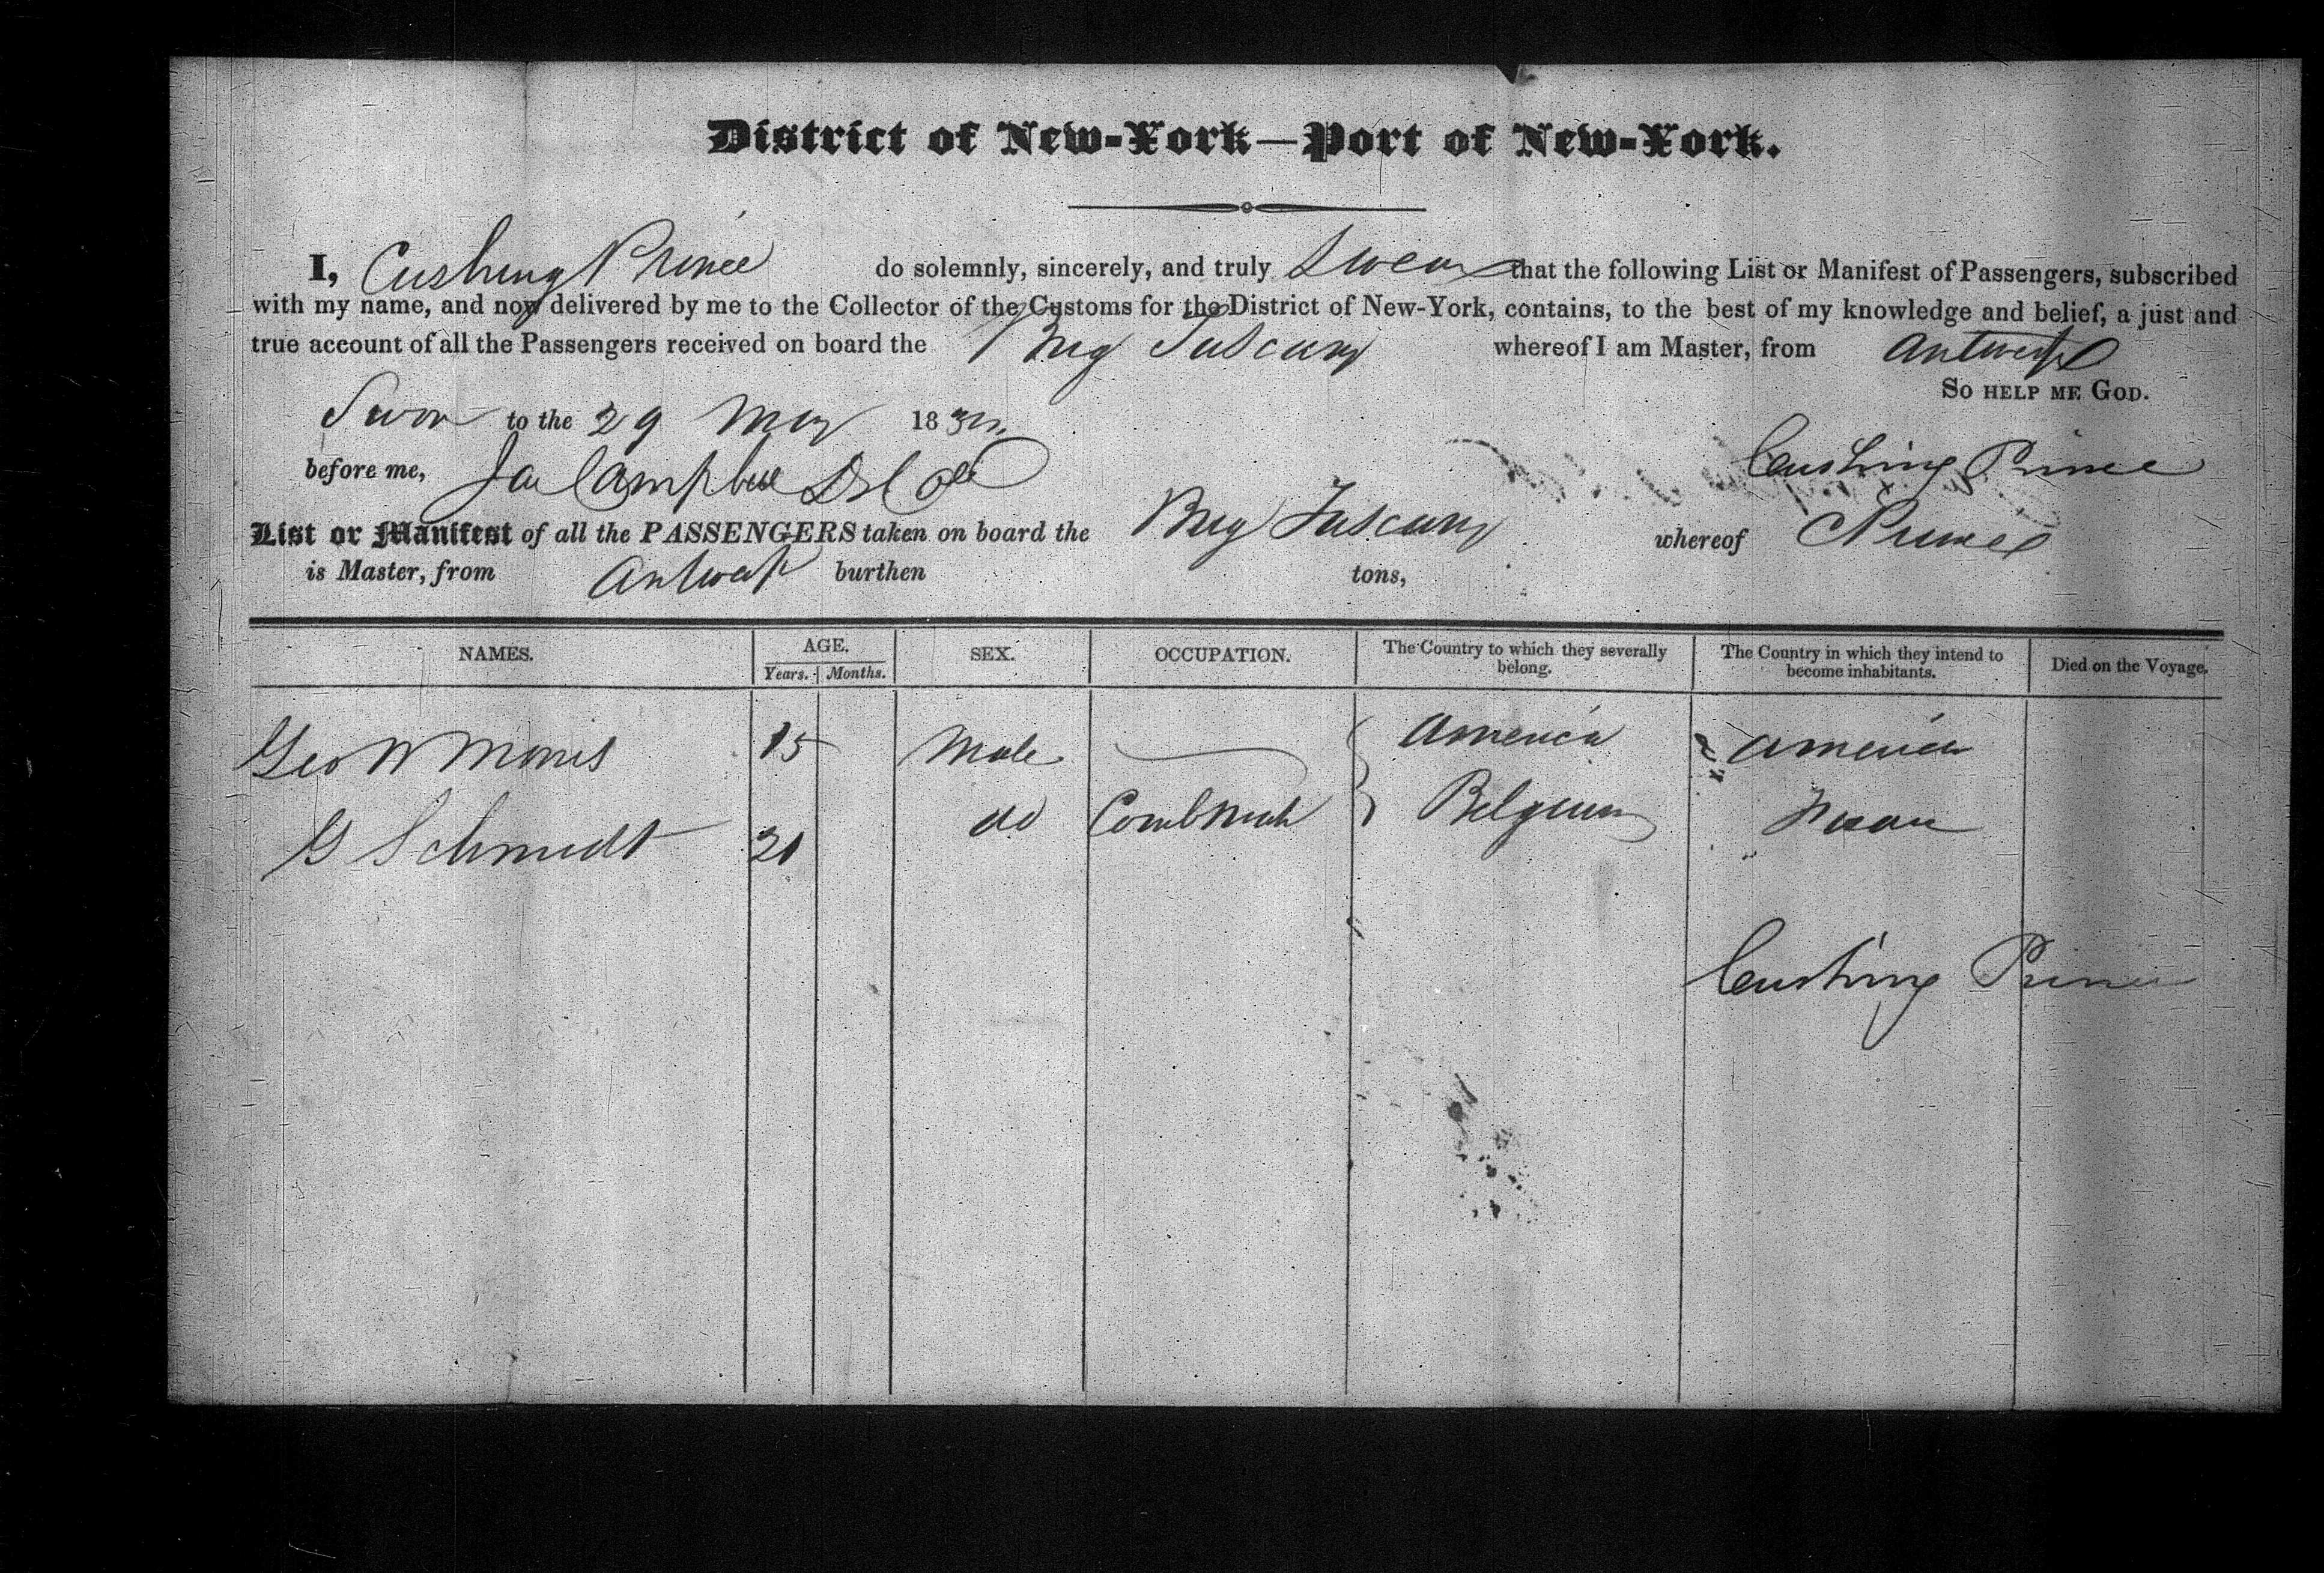 District of New-York—Port of New-York.
I, Cushing Prince do solemnly, sincerely, and truly Swear that the following List or Manifest of Passengers, subscribed
with my name, and now delivered by me to the Collector of the Customs for the District of New-York, contains, to the best of my knowledge and belief, a just and
true account of all the Passengers received on board the Brig Tuscany whereof I am Master, from Antwerp
So HELP ME GOD.
Sworn to the 29 May 183
before me, Campbell Cushing Prince
List or Manifest of all the PASSENGERS taken on board the Brig Tuscany whereof C Prince
is Master, from Antwerp burthen tons,
NAMES. AGE. Years. Months. SEX. OCCUPATION. The Country to which they severally belong. The Country in which they intend to become inhabitants. Died on the Voyage.
Geo W Morris 15 Male America America
G Schmidt 21 do Belgium
Cushing Prince